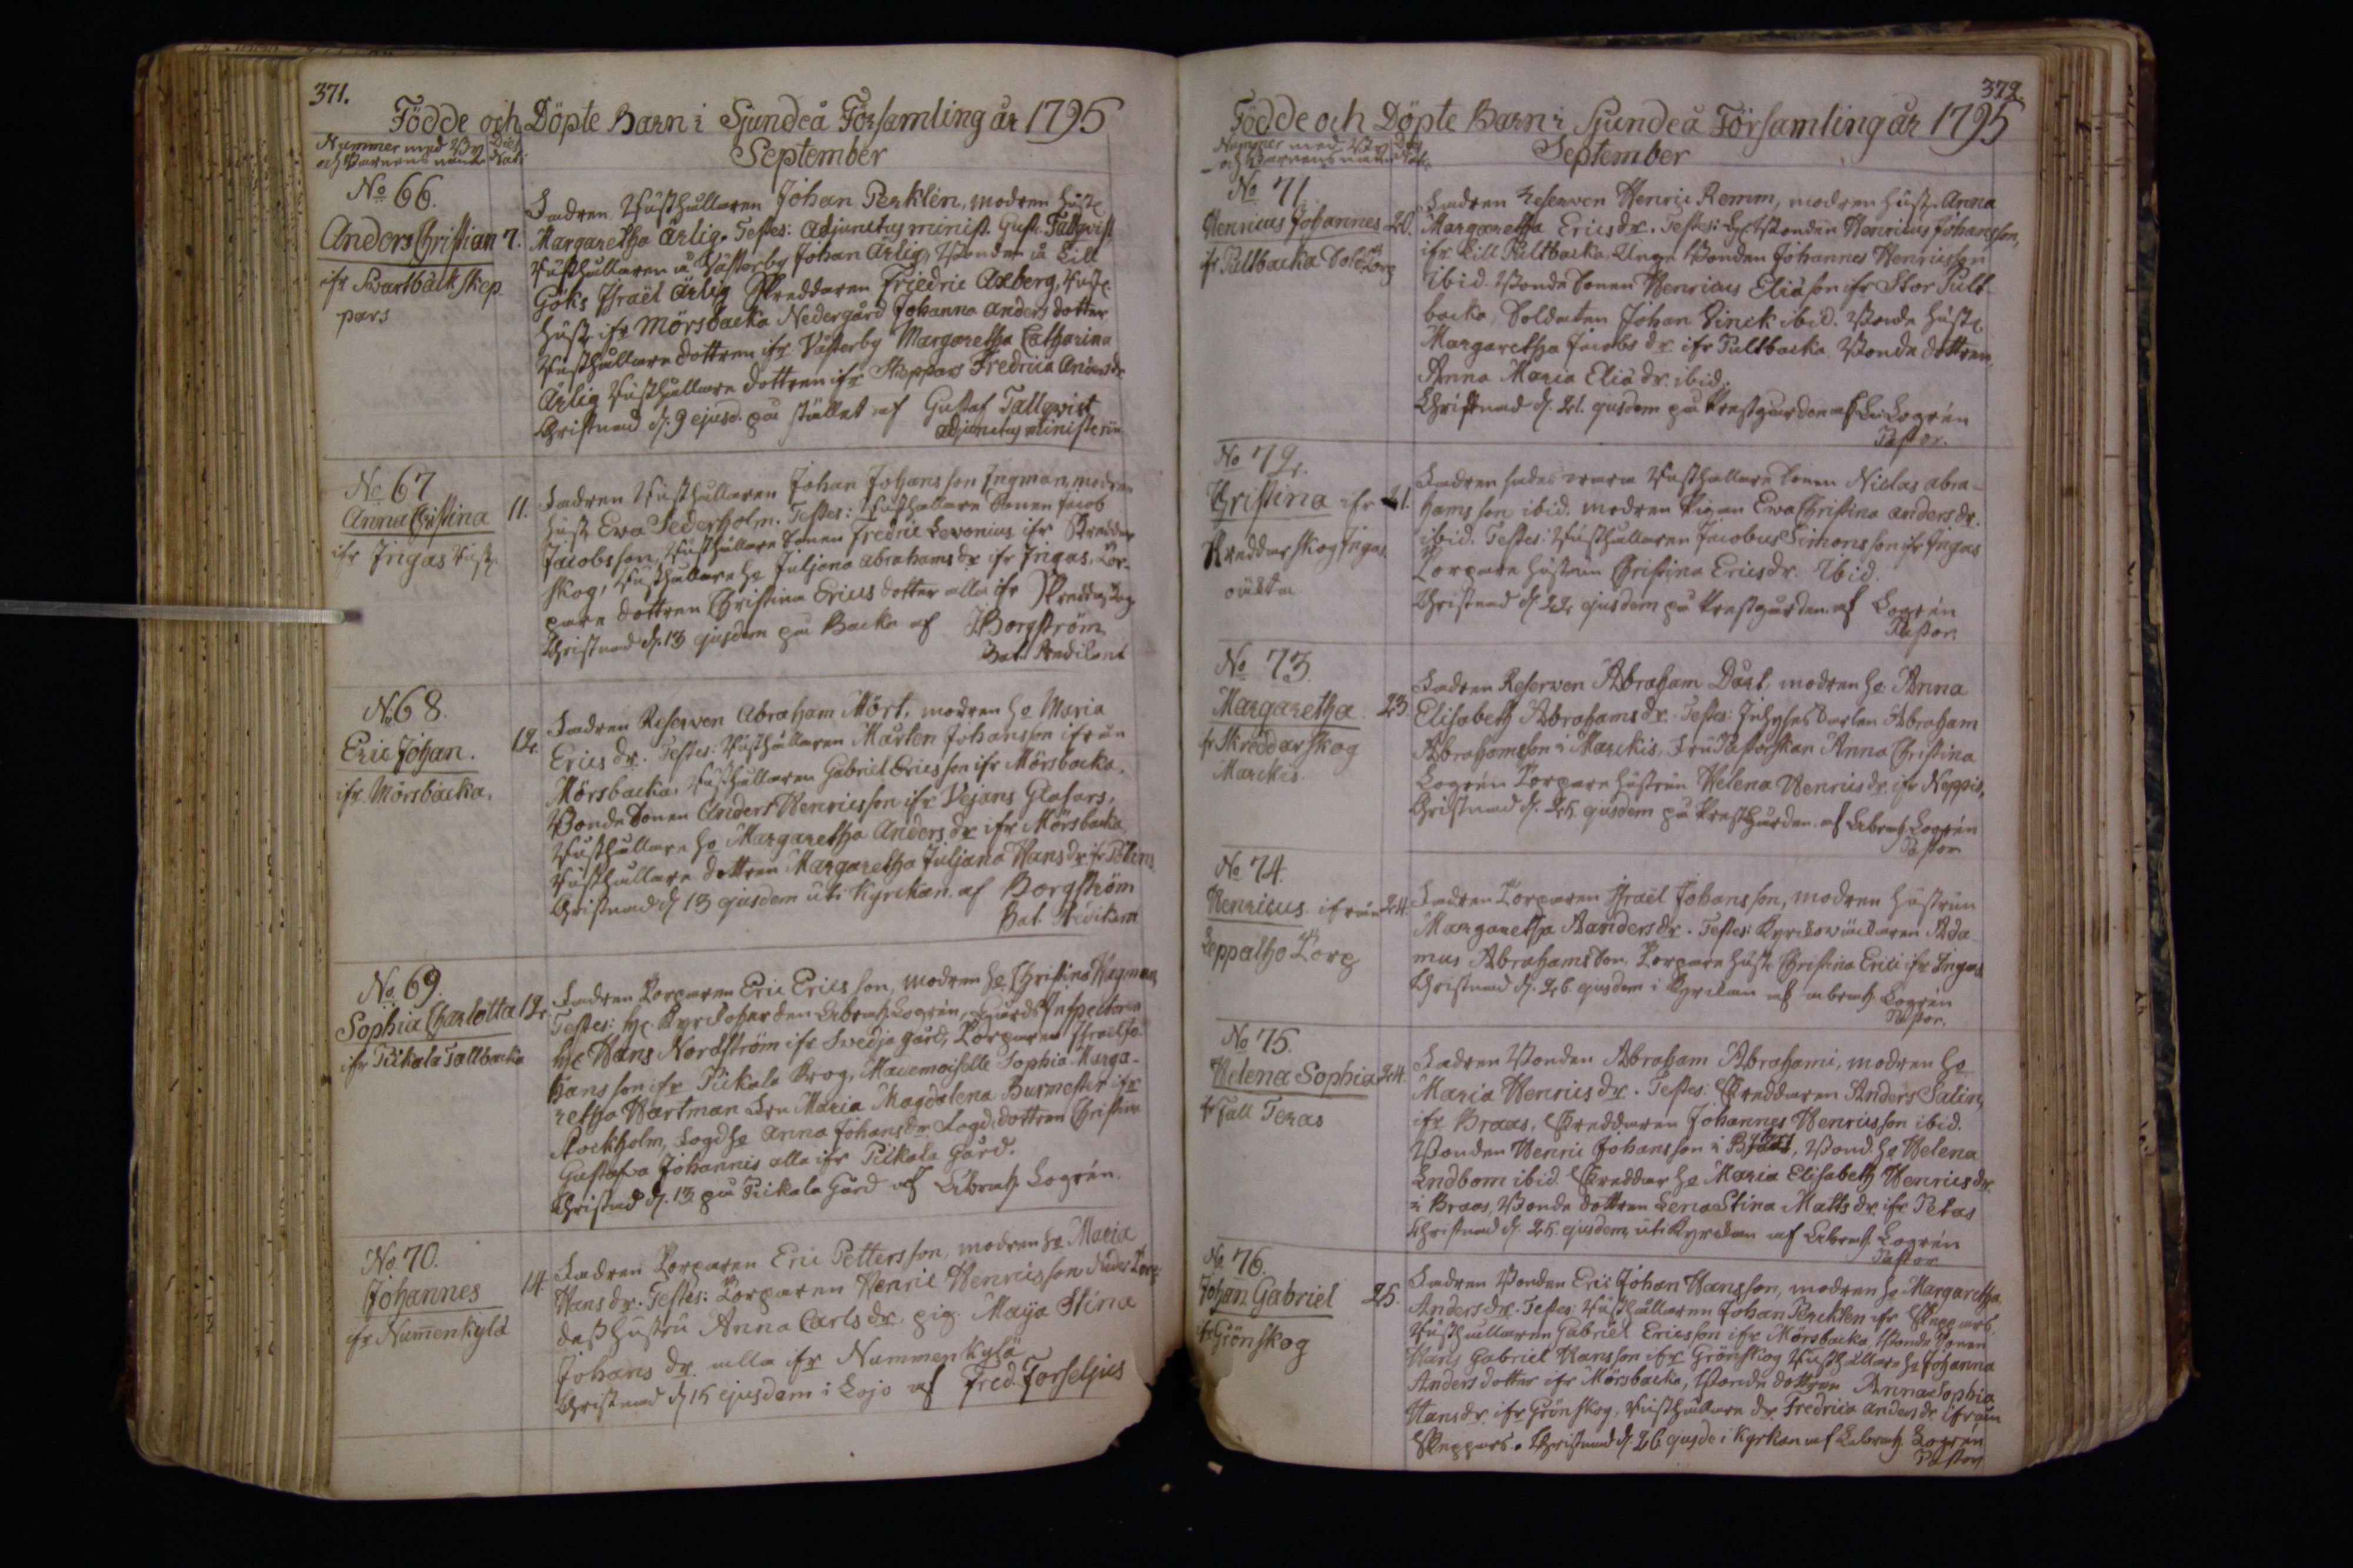 371.
Födde och Döpte Barn i Sjundeå Församling år 1795
Nummer med By
och Barnens namn
September
No 66.
Anders Christian 7.
ifr Swartbäck Skep
pars
Fadren Rusthållaren Johan Perklén, modren hust.
Margaretha Ärlig. Testes: Adjunctus minist. Gust. Tallqvist
Rusthållaren i Västerby Johan Ärlig, Bonden i Lill
Göks Israël Ärlig Skreddaren Friedric Axberg, Rust.
hust. ifr Mörsbacka Nedergård Johanna Anders dotter
Rusthållare dottren ifr Västerby Margaretha Catharina
Ärlig Rusthållare dottren ifr Skeppars Fredrica Andersdr
Christnad d. 9 ejusd. på stället af Gustaf Tallqwist
Adjunctus ministerii
No 67
Anna Christina 11.
ifr Ingas Rust.
Fadren Rusthållaren Johan Johansson Ingman, modren
hust Ewa Sederholm. Testes: Rusthållare Sonen Jacob
Jacobsson, Rusthållare Sonen Fredric Levonius ifr Skreddar
skog, Rusthållare ho Juliana Abrahams dr ifr Ingas. Tor-
pare dottren Christina Erics dotter alla ifr Skreddarskog
Christnad d. 13 ejusdem på Backa af J Borgström
Bat. Predikant
No 68.
Eric Johan. 12.
ifr Mörsbacka.
Fadren Reserven Abraham Mört, modren ho Maria
Ericsdr. Testes: Rusthållaren Mårten Johansson ifrån
Mörsbacka, Rusthållaren Gabriel Ericsson ifr Mörsbacka,
Bonde Sonen Anders Henricsson ifr Vejans Glasars,
Rusthållare ho Margaretha Anders dr ifr Mörsbacka
Rusthållare dottren Margaretha Juliana Hansdr ifr
Christnad d 13 ejusdem uti Kyrckan af Borgström
Bat. Predikant
No 69.
Sophia Charlotta 12.
ifr Pickala Tallbacka
Fadren Torparen Eric Ericsson, modren ho Christina Wagman
Testes: Hr Kyrckoherden Abrah. Logrén, Gårds Inspectoren
Hr Hans Nordström ifr Swedja gård, Torparen Israel Jo-
hansson ifr Pickala Krog, Mademoiselle Sophia Marga-
retha Hartman Fru Maria Magdalena Burmester ifr
Stockholm, Fogd ho Anna Johansdr Fogd dottren Christina
Gustafva Johannis alla ifr Pickala Gård.
Christnad d. 13 på Pickala Gård af Abrah. Logrén.
No 70.
Johannes 14.
ifr Num̄enkylä
Fadren Torparen Eric Pettersson, modren ho Maria
Hansdr. Testes: Torparen Henric Henricsson
dess hustru Anna Carlsdr, pig. Maija Stina
Johansdr alla ifr Nummenkylä
Christnad d 15 ejusdem i Lojo af Fred. Forseljus
372.
Födde och Döpte Barn i Sjundeå Församling år 1795
Nummer med By
och Barnens namn
September
No 71.
Henricus Johannes 20.
ifr Pultbacka Sold. Torp
Fadren Reserven Henric Remm, modren hustr. Anna
Margaretha Ericsdr. Testes: Bonden Henricus Johansson,
ifr Lill Pultbacka. Unge Bonden Johannes Henricsson
ibid. Bonde Sonen Henricus Eliasson ifr Stor Pult-
backa, Soldaten Johan Finck ibid. Bonde hustr.
Margaretha Jacobs dr ifr Pultbacka. Bonde dottren,
Anna Maria Eliadr. ibid.
Christnad d. 21. ejusdem på Prestgården af Logrén
Pastor.
No 72.
Christina ifr 21.
Skreddarskog Ingas
oäckta
Fadren sades vara Rusthållare Sonen Niclas Abra-
hamsson ibid. modren Pigan Ewa Christina Andersdr.
ibid. Testes: Rusthållaren Jacobus Simonsson ifr Ingas
Torpare hustrun Christina Ericsdr. Ibid.
Christnad d 22 ejusdem på Prestgården af Logrén
Pastor.
No 73.
Margaretha 23.
fr Skreddarskog
Marckis.
Fadren Reserven Abraham Dart, modren ho Anna
Elisabeth Abrahamsdr. Testes: Inhyses Karlen Abraham
Abrahamsson i Marckis, Fru Pastorskan Anna Christina
Logrén Torpare hustrun Helena Henricsdr ifr Neppis,
Christnad d. 25 ejusdem på Prestgården af Abrah. Logrén
Pastor
No 74.
Henricus ifrån 24.
Leppälho Torp
Fadren Torparen Israël Johansson, modren hustrun
Margaretha Aandersdr. Testes: Kyrckowäcktaren Ada-
mus Abrahamsson. Torpare hustr. Christina Erici ifr Ingas
Christnad d. 26 ejusdem i Kyrckan af Abrah. Logrén
Pastor.
No 75.
Helena Sophia 24.
fr Fall Teras
Fadren Bonden Abraham Abrahami, modren ho
Maria Henricsdr. Testes: Skreddaren Anders Salin,
ifr Braas, Skreddaren Johannes Henricsson ibid.
Bonden Henric Johansson i, Bond. ho Helena
Lndbom ibid. Skreddar ho Maria Elisabeth Henricsdr
i Braas, Bonde dottren Lena Stina Mattsdr ifr Petas
Christnad d. 25 ejusdem, uti Kyrckan af Abrah. Logrén
Pastor
No 76.
Johan Gabriel 25.
fr Grönskog
Fadren Bonden Eric Johan Hansson, modren ho Margaretha
Andersdr. Testes: Rusthållaren Johan Perklen ifr Skeppars,
Rusthållaren Gabriel Ericsson ifr Mörsbacka, Bonde Sonen
Hans Gabriel Hansson ifr Grönskog Rusthållare ho Johanna
Anders dotter ifr Mörsbacka, Bonde dottren Anna Sophia
Hansdr. ifr Grönskog, Rusthållare dr Fredrica Andersdr ifrån
Skeppars. Christnad d. 26 ejusde i Kyrkan af Abrah. Logrén
Pastor